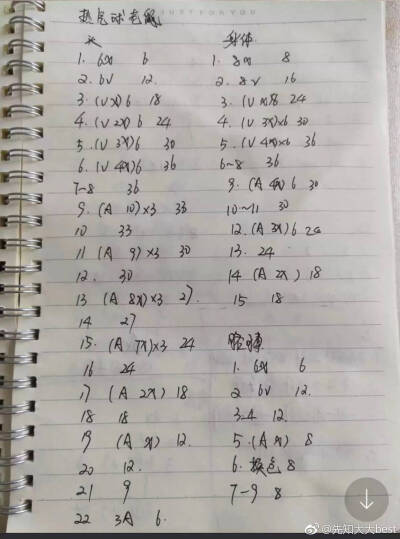 热气球老鼠
头
1. 6x 6
2. 6v 12.
3. (V x) 6 18
4. (V 2x) 6 24
5. (V 3x) 6 30
6. (V 4x) 6 36
7-8 36
9. (A 10) ×3 33
10 33
11 (A 9) ×3 30
12. 30
13 (A 8x) ×3 27.
14 27
15. (A 7x) ×3 24
16 24
17 (A 2x) 18
18 18
19 (A x) 12.
20 12.
21 9
22 3A 6.
身体
1. 8x 8
2. 8v 16
3. (V x) 8 24
4. (V 3x) ×6 30
5. (V 4x) ×6 36
6~8 36
9. (A 4x) 6 30
10~11 30
12. (A 3x) 6 24
13. 24
14 (A 2x) 18
15 18
胳膊
1. 6x 6
2 6v 12.
3-4 12.
5. (A x) 8
6. 换色 8
7-9 8
@先知大大best